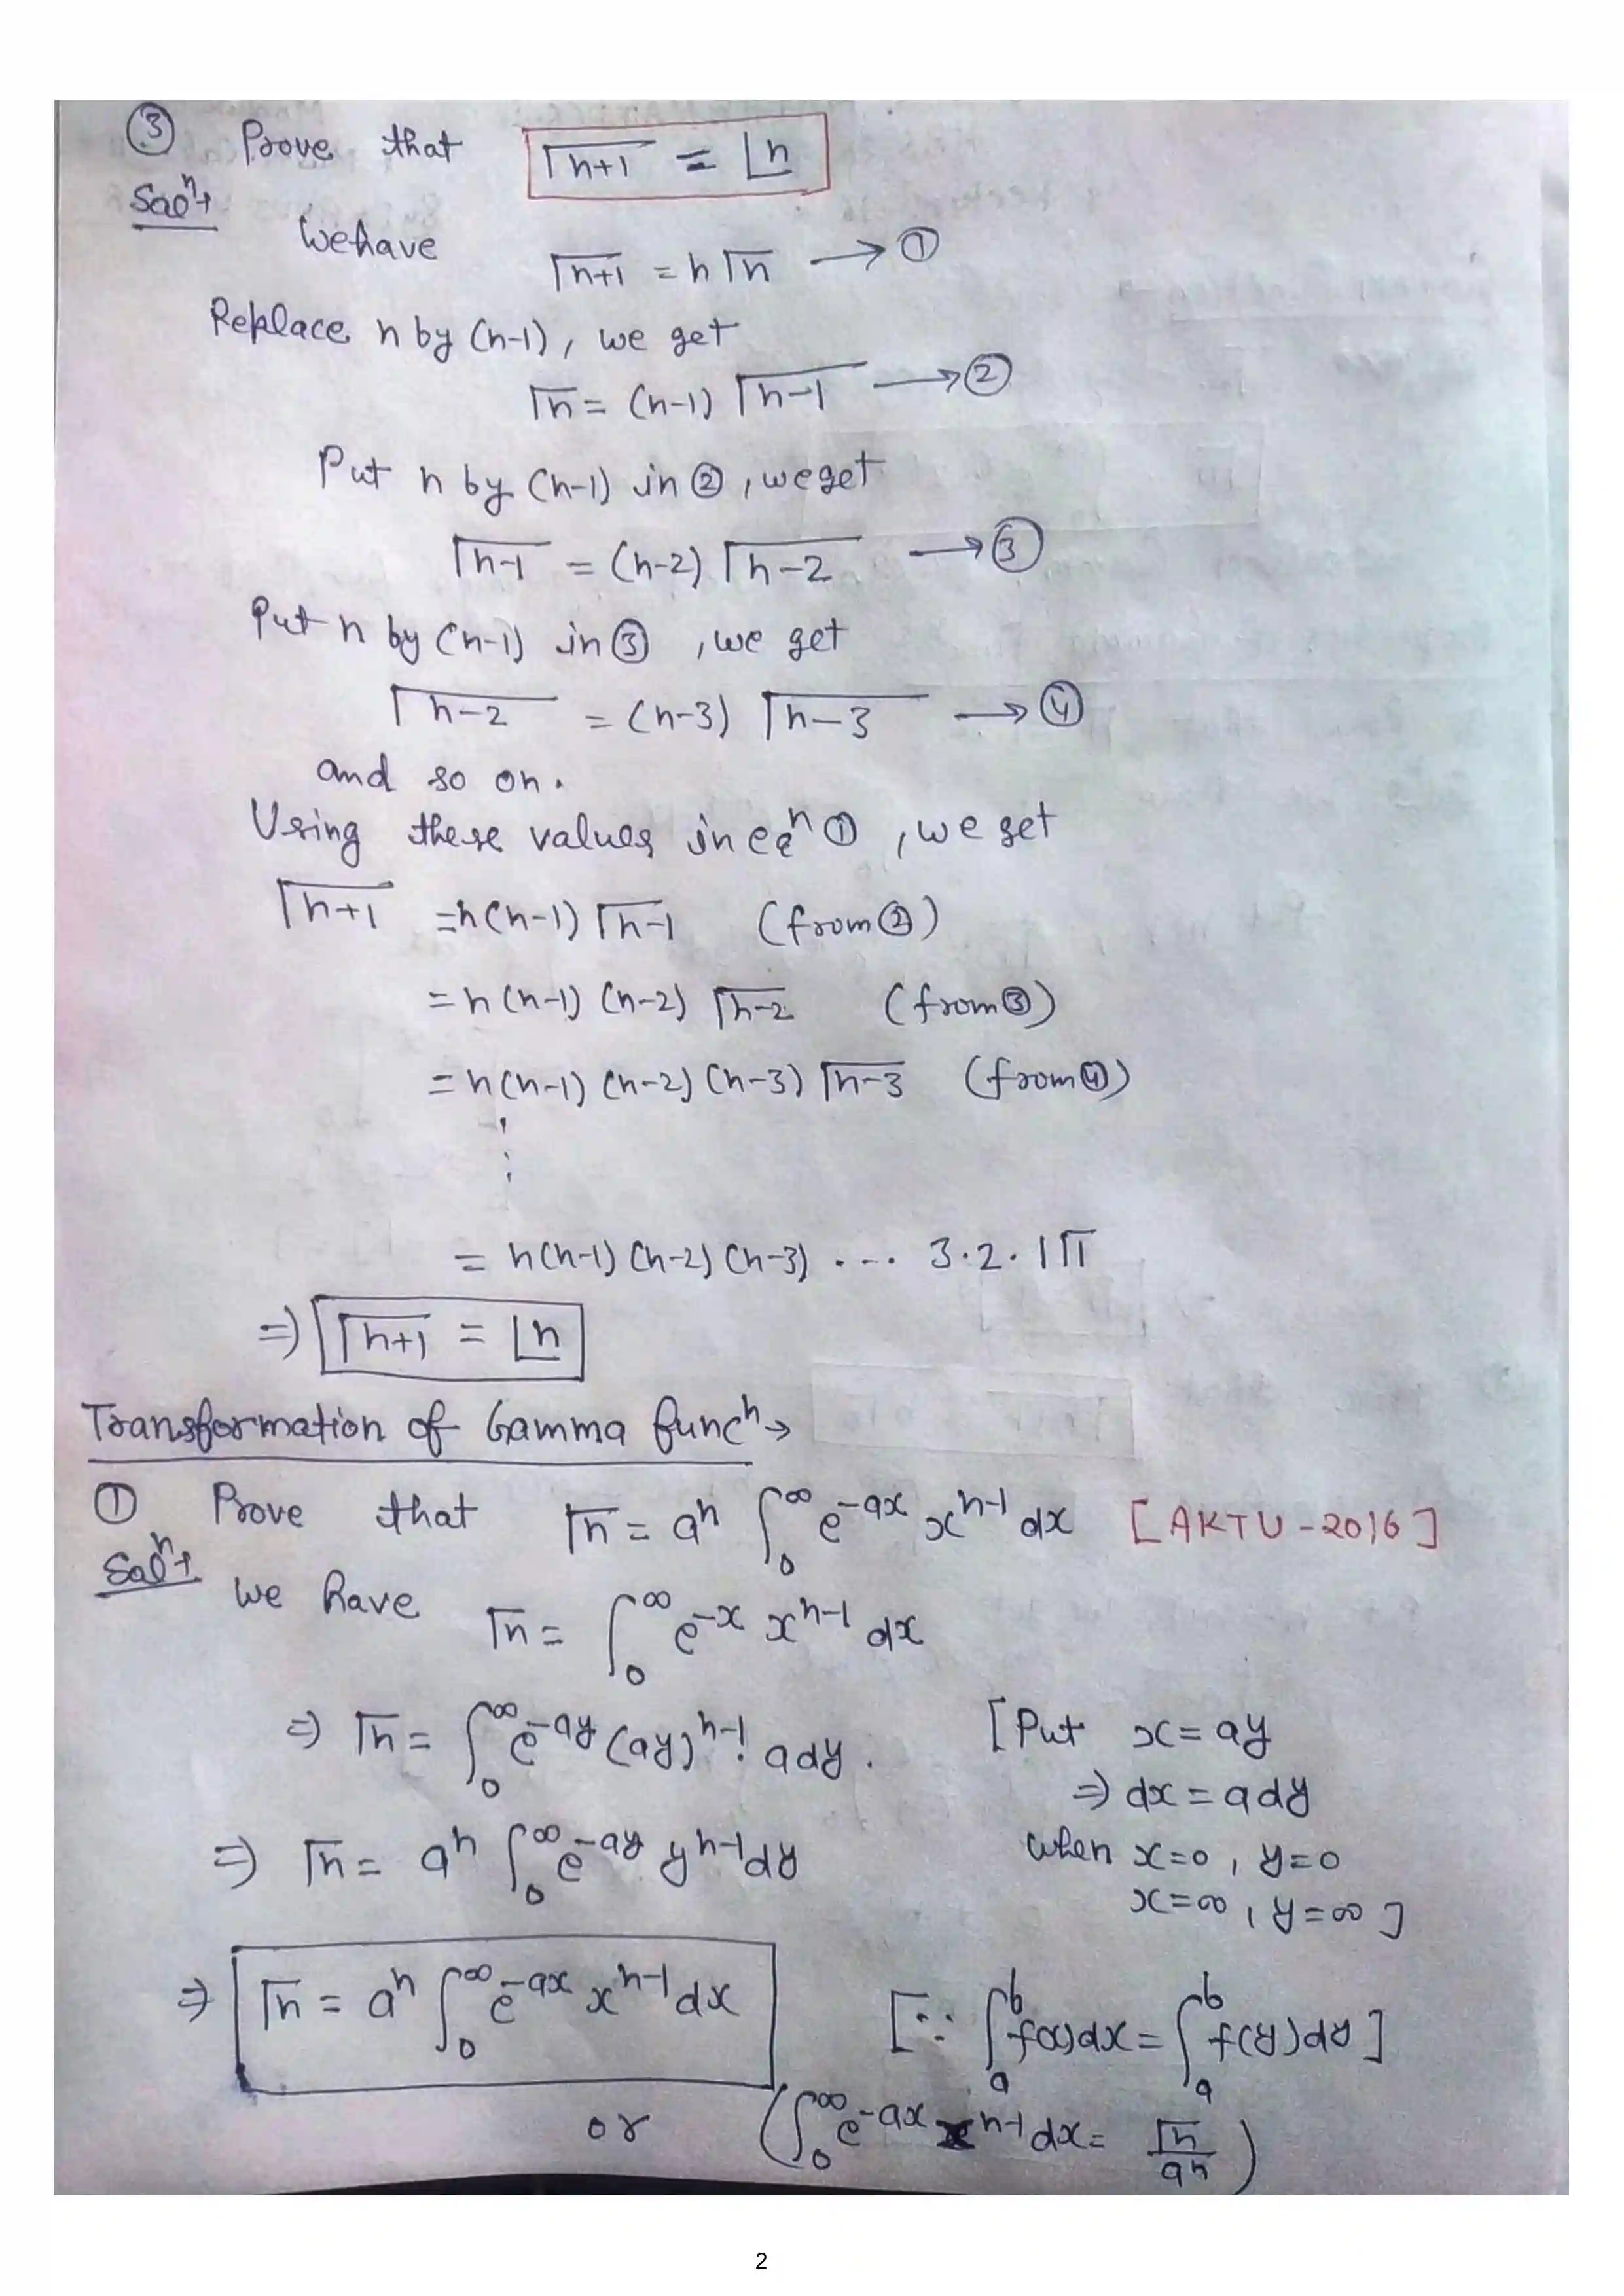 ③ Prove that Γn+1 = ⌊n
Solⁿ→
We have Γn+1 = n Γn → ①
Replace n by (n-1), we get
Γn = (n-1) Γn-1 → ②
Put n by (n-1) in ②, we get
Γn-1 = (n-2) Γn-2 → ③
Put n by (n-1) in ③, we get
Γn-2 = (n-3) Γn-3 → ④
and so on.
Using these values in eqⁿ ①, we get
Γn+1 = n(n-1) Γn-1 (from ②)
= n(n-1) (n-2) Γn-2 (from ③)
= n(n-1) (n-2) (n-3) Γn-3 (from ④)
⋮
= n(n-1) (n-2) (n-3) .... 3.2.1 Γ1
⇒ Γn+1 = ⌊n
Transformation of Gamma funcⁿ→
① Prove that Γn = aⁿ ∫₀^∞ e^-ax x^n-1 dx [AKTU-2016]
Solⁿ→
we have Γn = ∫₀^∞ e^-x x^n-1 dx
⇒ Γn = ∫₀^∞ e^-ay (ay)^n-1. a dy. [Put x = ay
⇒ dx = a dy
⇒ Γn = aⁿ ∫₀^∞ e^-ay y^n-1 dy when x=0, y=0
x=∞, y=∞]
⇒ Γn = aⁿ ∫₀^∞ e^-ax x^n-1 dx [∵ ∫ₐ^b f(x)dx = ∫ₐ^b f(y)dy]
or (∫₀^∞ e^-ax x^n-1 dx = Γn/aⁿ)
2